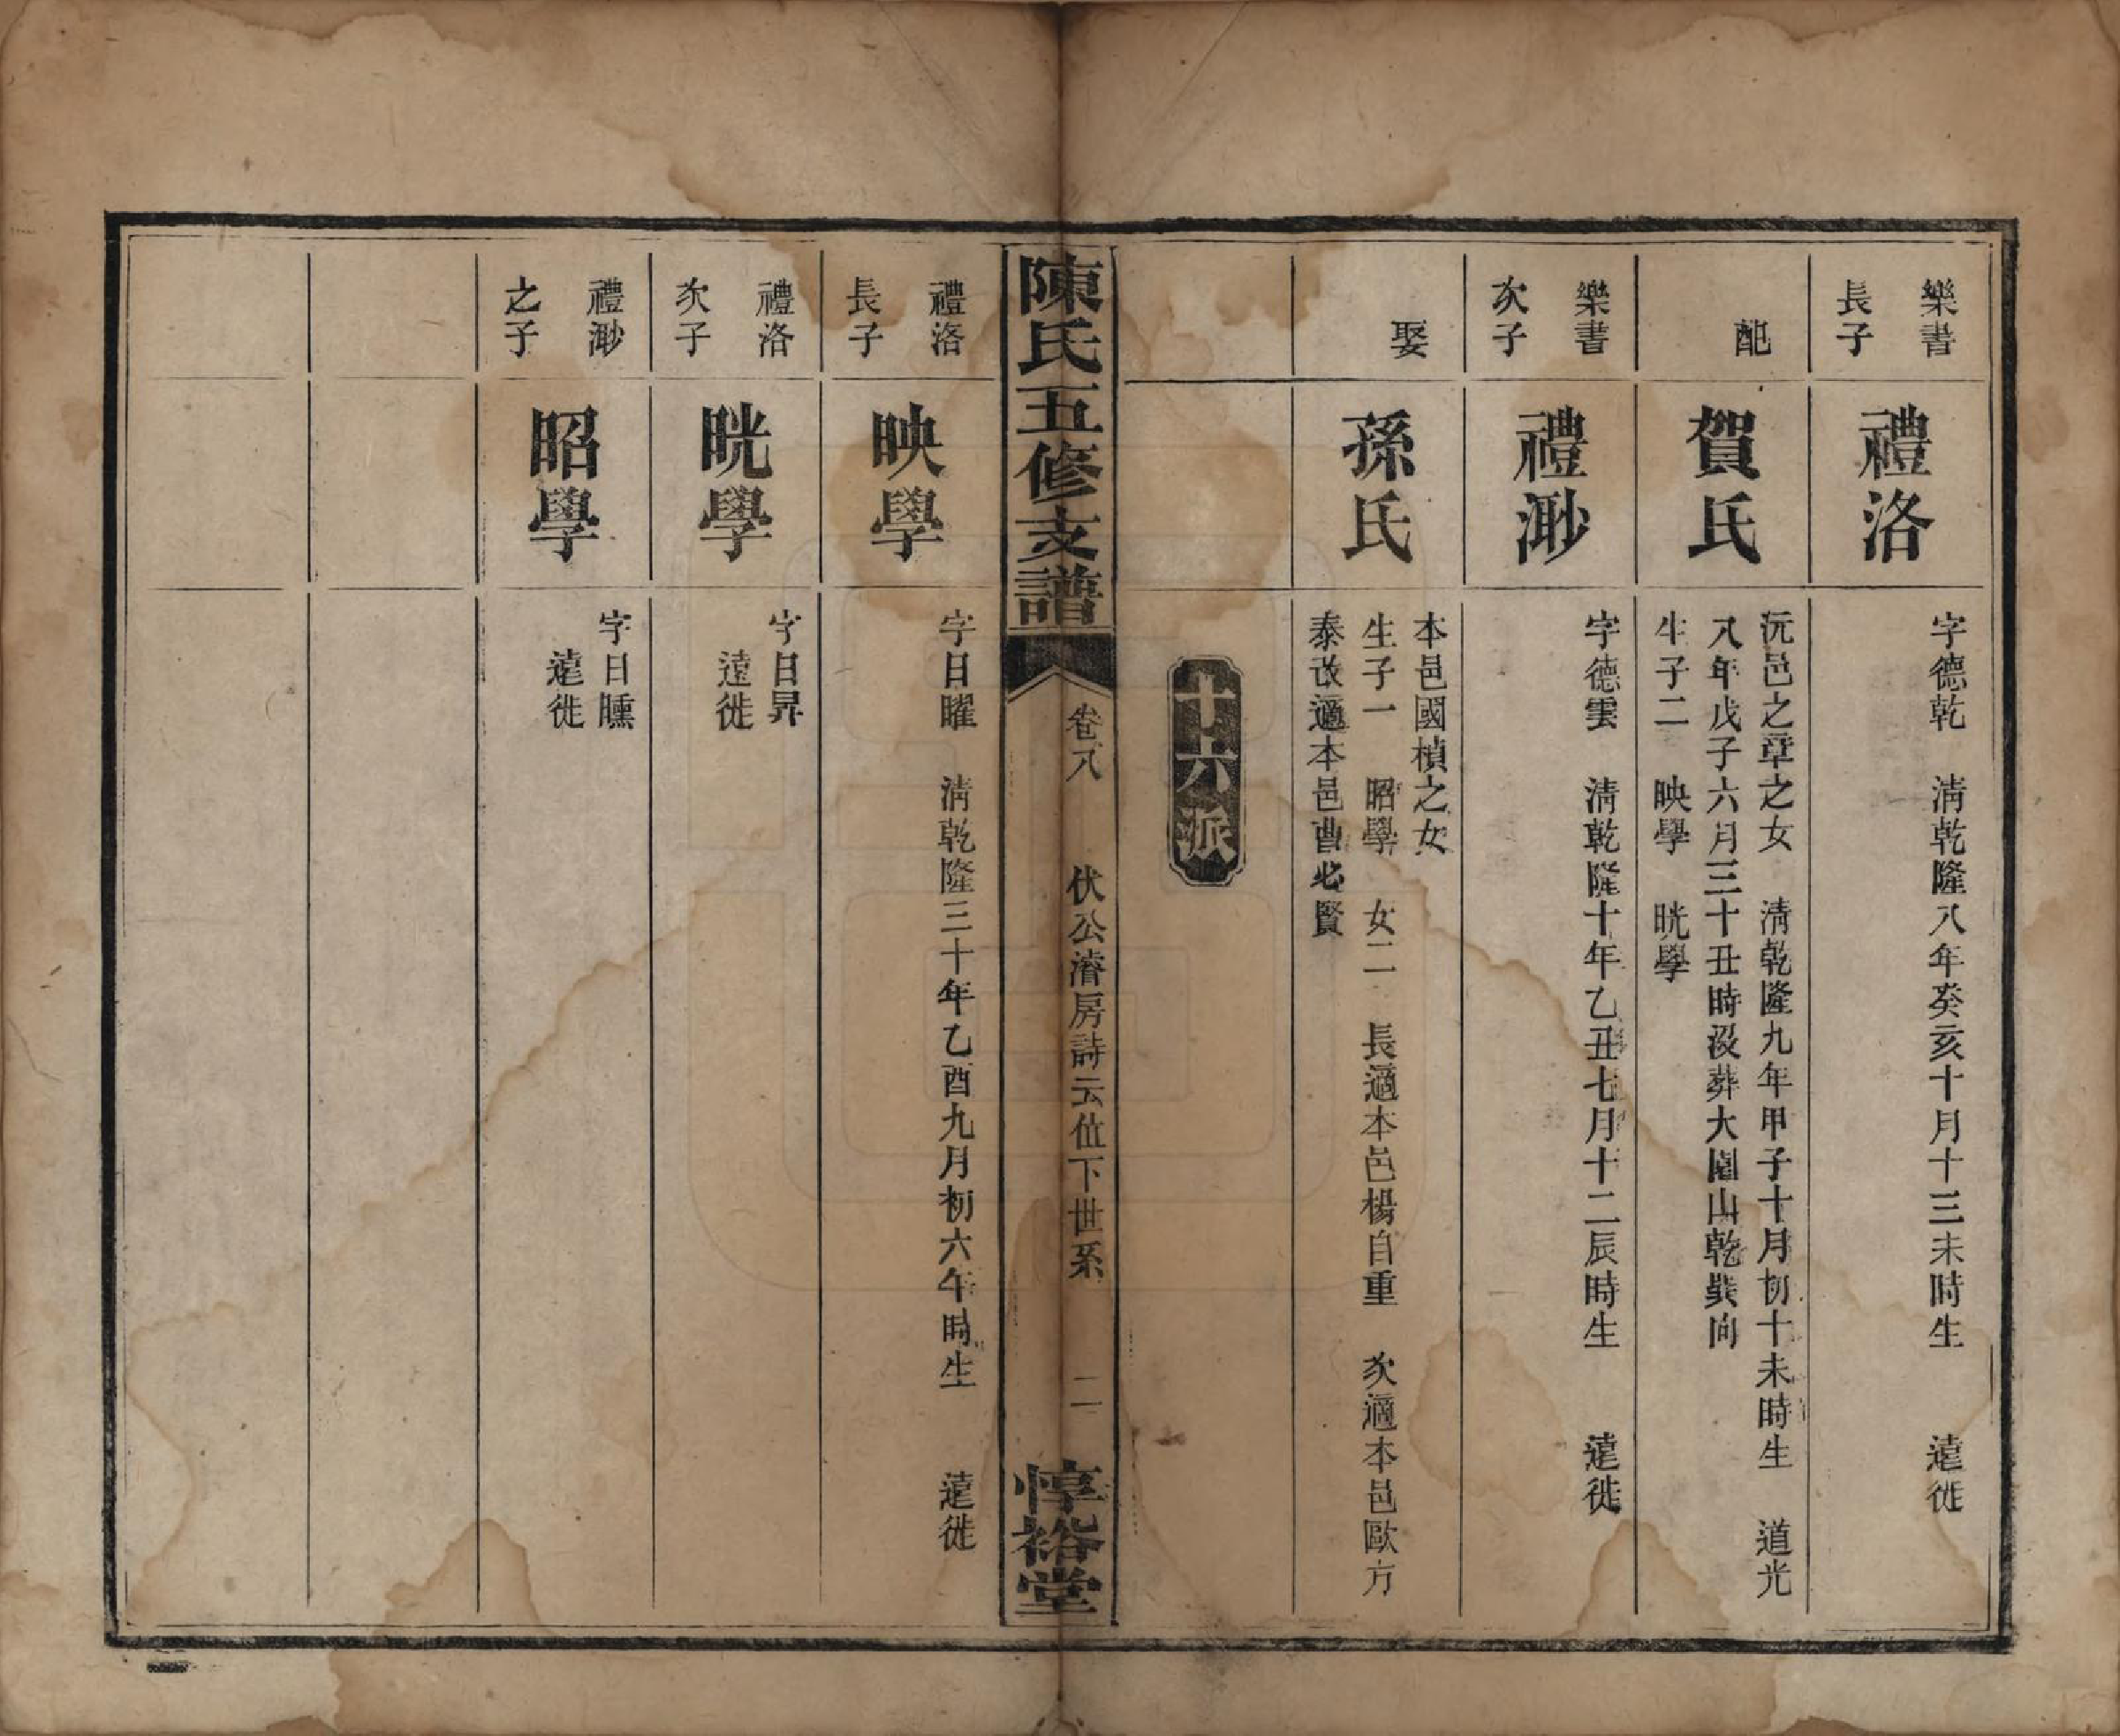 樂書
長子
禮洛
字德乾　淸乾隆八年癸亥十月十三未時生　遠徙
配
賀氏
沅邑之章之女　淸乾隆九年甲子十月初十未時生　道光
八年戊子六月三十丑時沒葬大園山乾巽向
生子二　映學　晄學
樂書
次子
禮渺
字德雲　淸乾隆十年乙丑七月十二辰時生　遠徙
娶
孫氏
本邑國楨之女
生子一　昭學　女二　長適本邑楊自重　次適本邑歐方
泰改適本邑曹必賢
十六派
陳氏五修支譜
卷八　伏公濬房詩云值下世系　二
惇裕堂
禮洛
長子
映學
字日曜　淸乾隆三十年乙酉九月初六午時生　遠徙
禮洛
次子
晄學
字日昇
遠徙
禮渺
之子
昭學
字日曛
遠徙